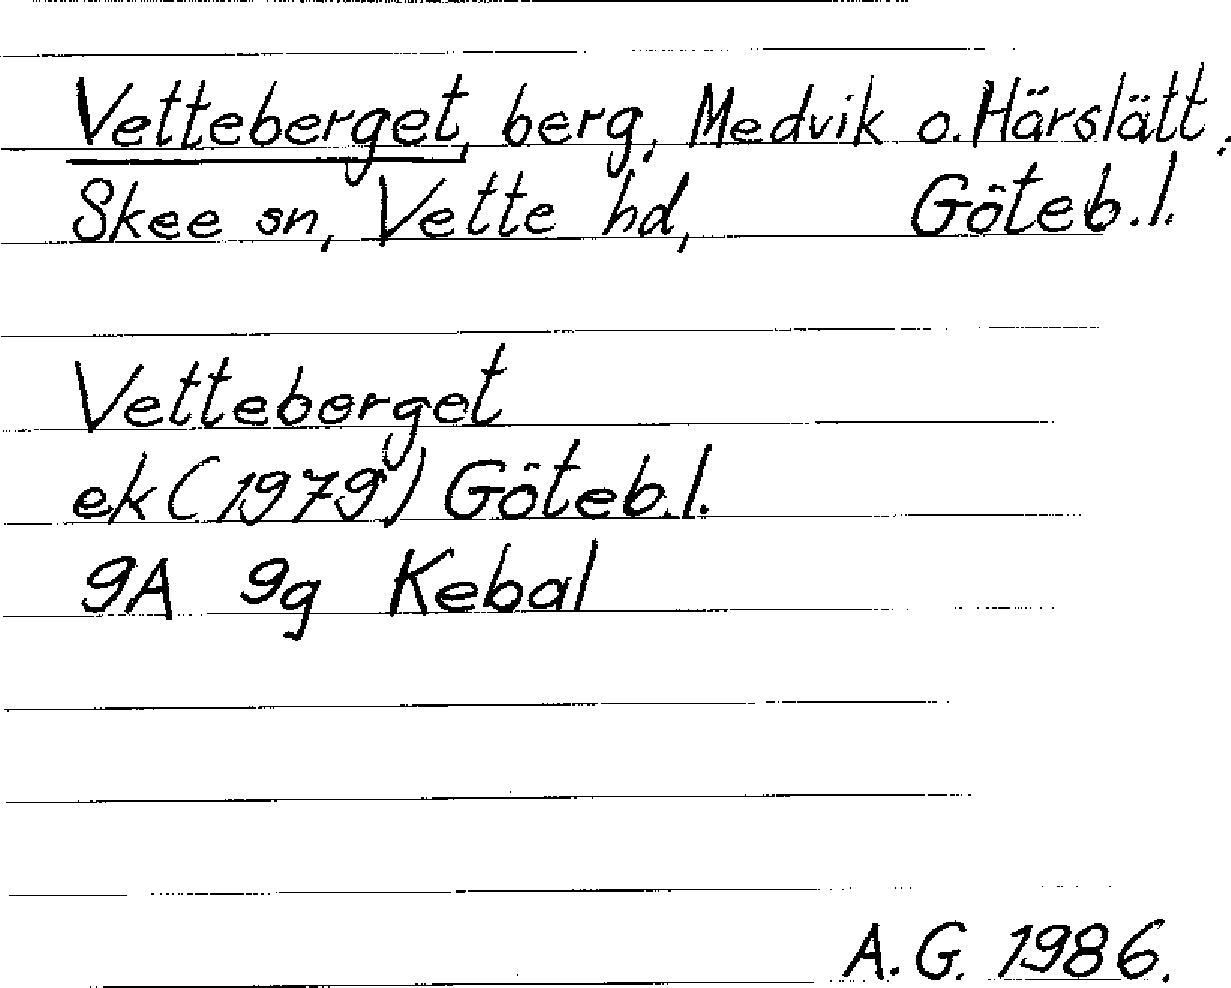 Vetteberget, berg, Medvik o. Härslätt,
Skee sn, Vette hd, Göteb.l.
Vetteberget
ek (1979) Göteb.l.
9A 9g Kebal
A.G. 1986.